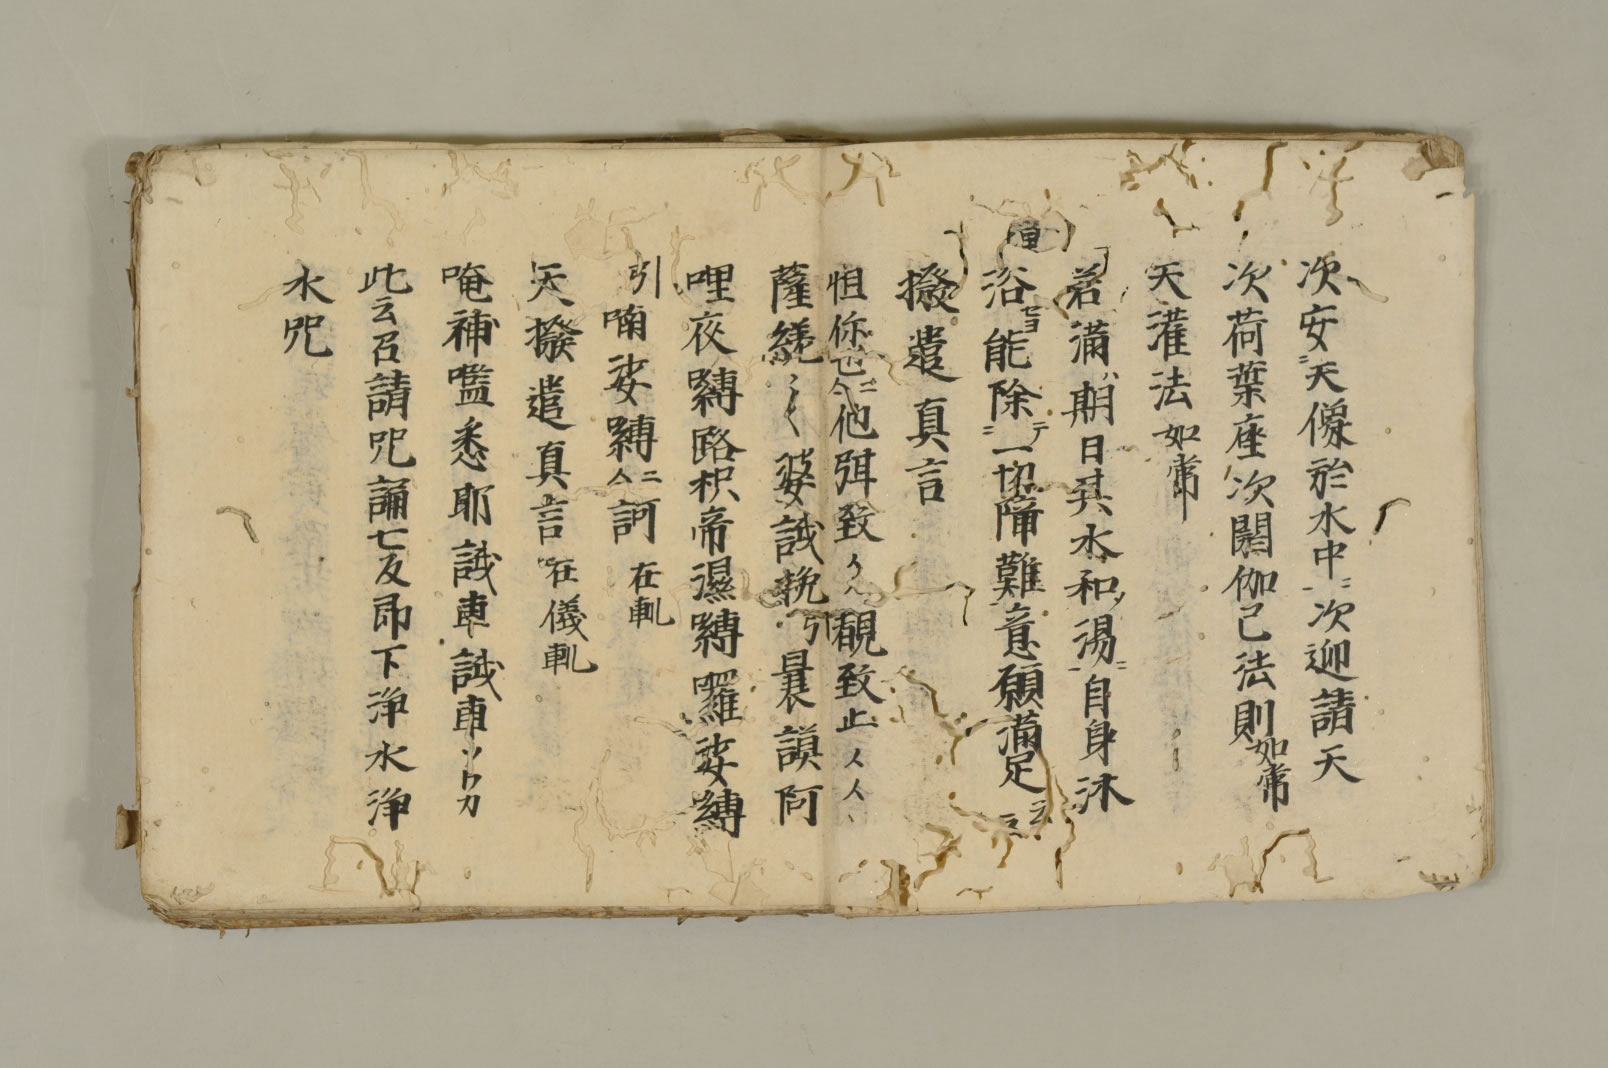 次安ニ天像於水中ニ次迎請天
次荷葉座次閼伽已法則如常
天灌法如常
若滿ハ期日其水和ノ湯ニ自身沐
浴セヨ能除ニテ一切障難意願滿足云云
撥遣真言
怛你也二合他弭致
薩 婆誐 引曩謨阿
哩夜縛路枳帝濕縛囉娑縛
引喃娑縛二合訶在軌
天撥遣真言在儀軌
唵補嚂悉耶誐車誐車
此云召請咒誦七反即下淨水淨
水咒